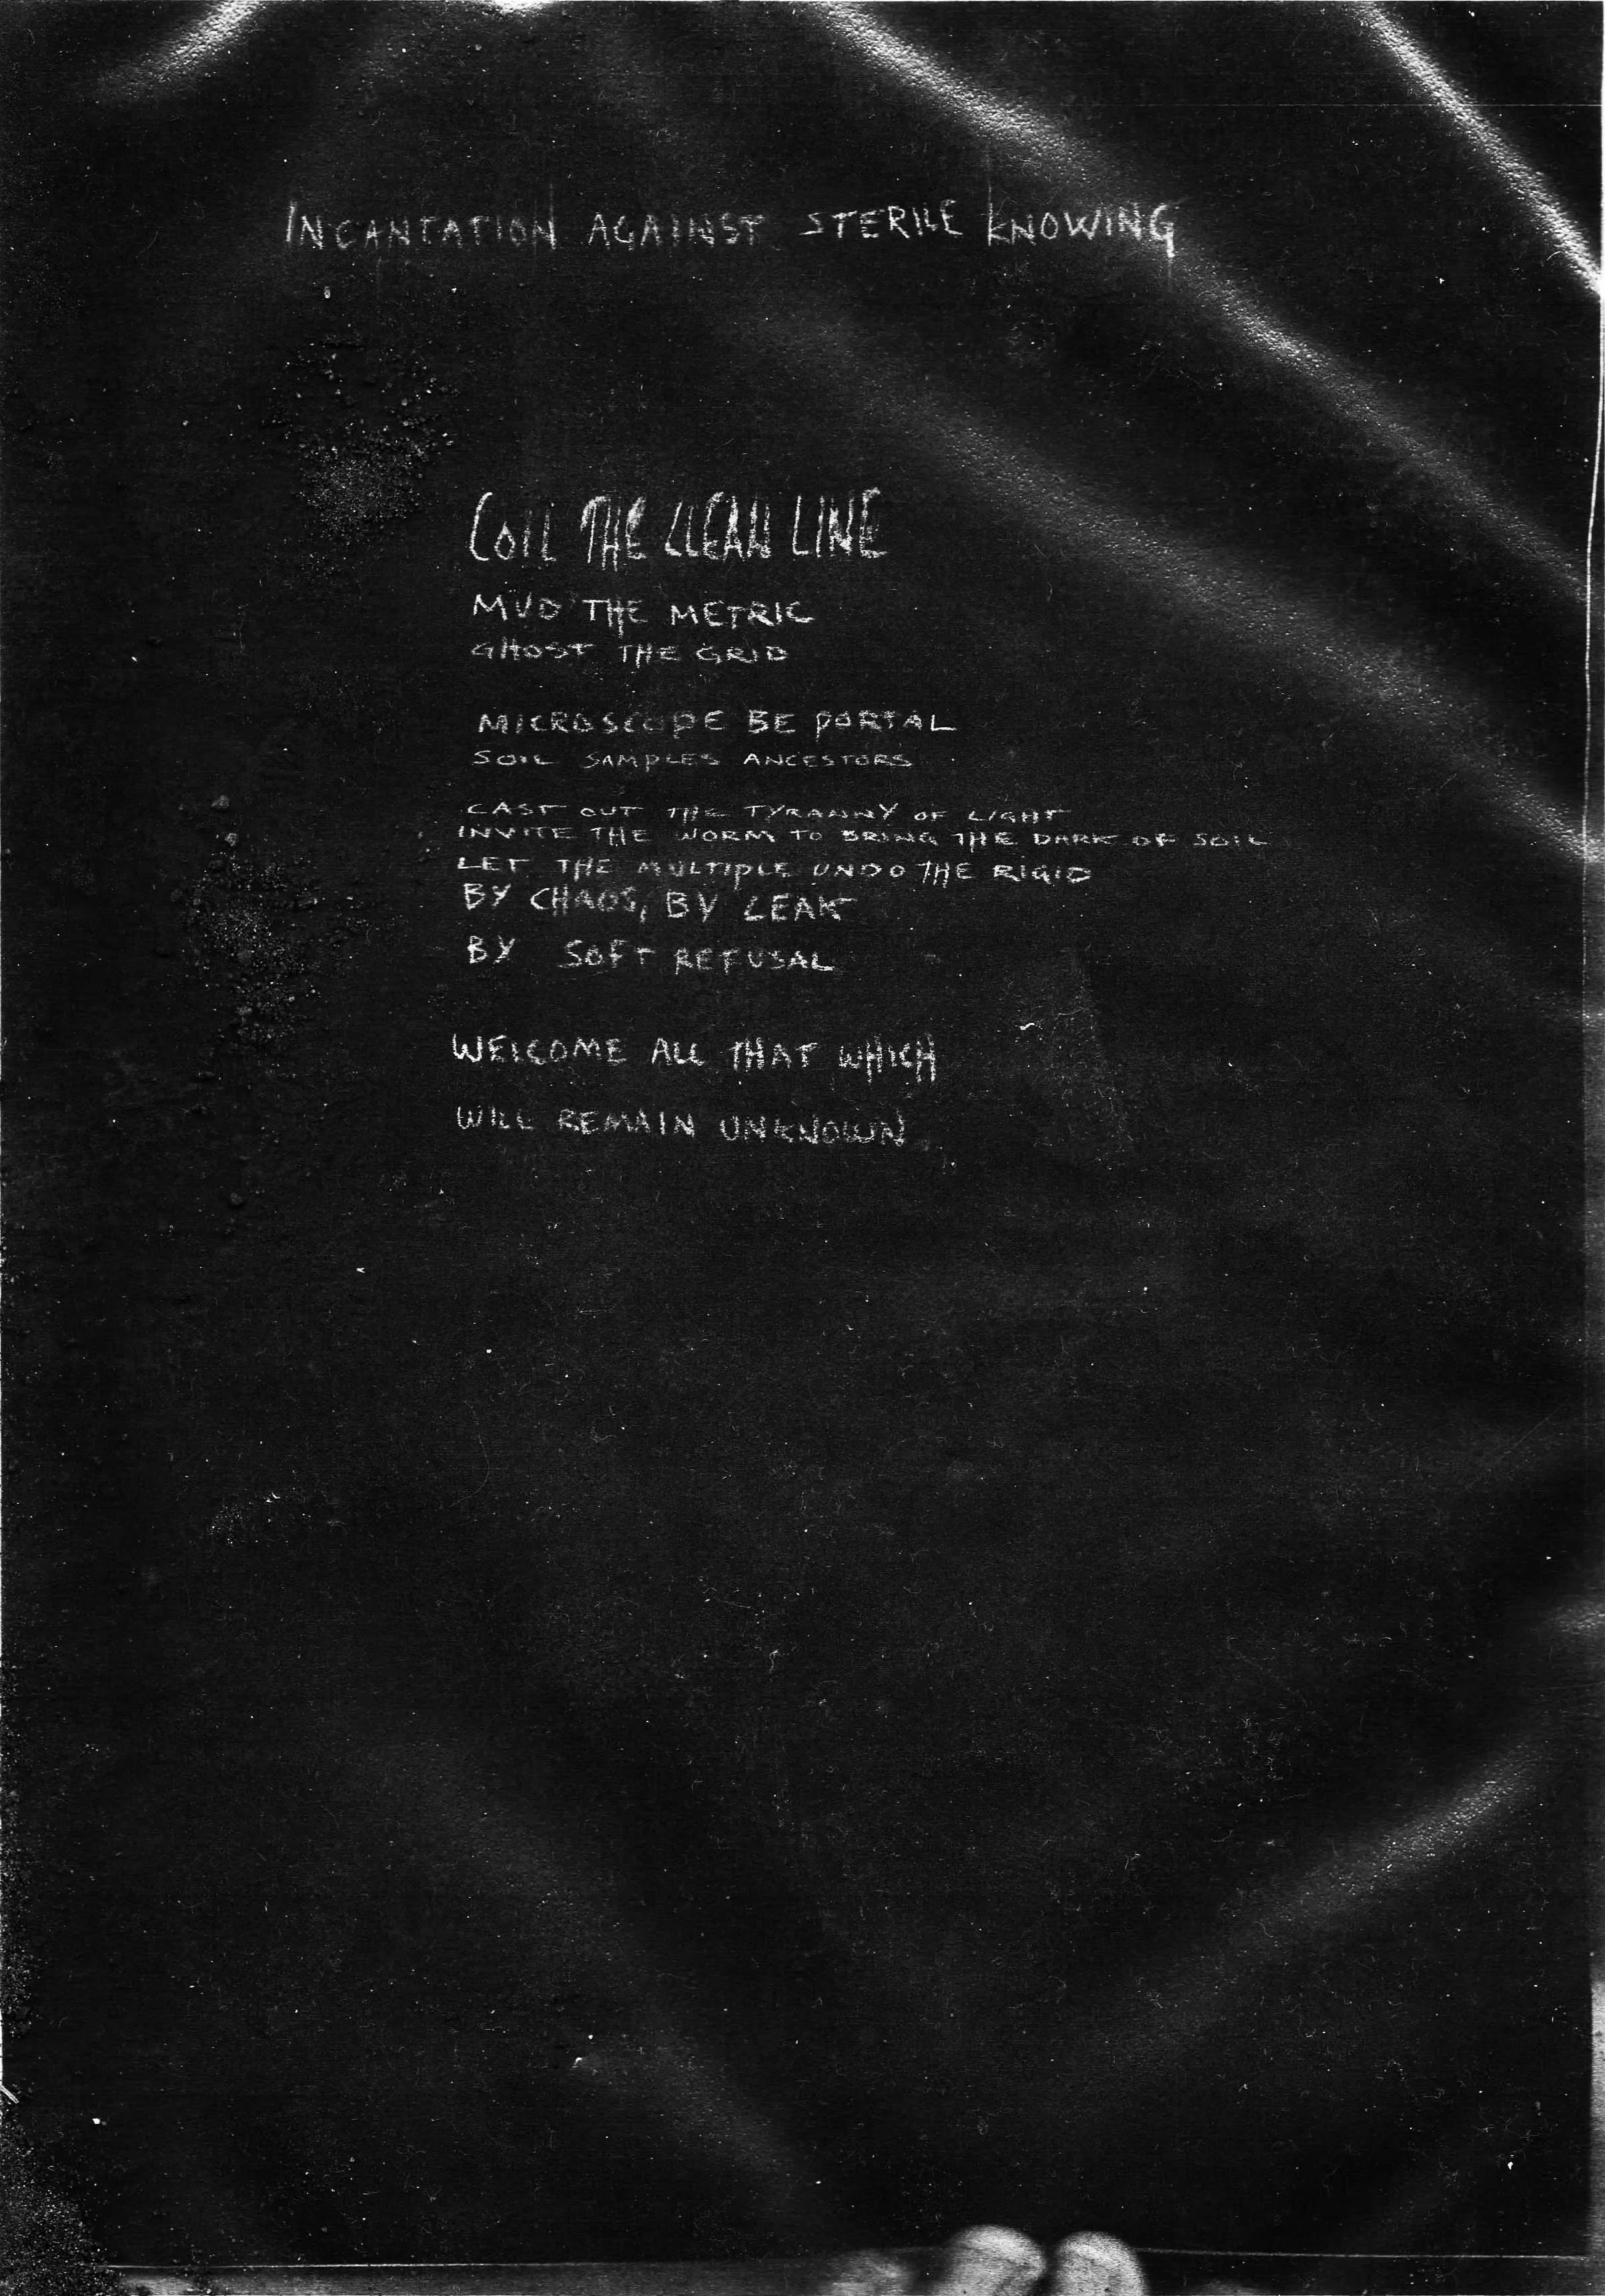 INCANTATION AGAINST STERILE KNOWING
COIL THE CLEAN LINE
MUD THE METRIC
GHOST THE GRID
MICROSCOPE BE PORTAL
SOIL SAMPLES ANCESTORS
CAST OUT THE TYRANNY OF LIGHT
INVITE THE WORM TO BRING THE DARK OF SOIL
LET THE MULTIPLE UNDO THE RIGID
BY CHAOS, BY LEAK
BY SOFT REFUSAL
WELCOME ALL THAT WHICH
WILL REMAIN UNKNOWN